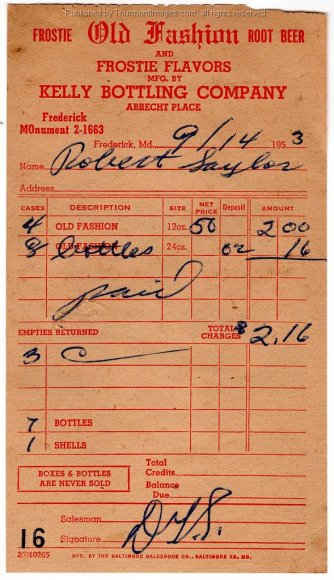 Published by ThurmontImages.com, all rights reserved
FROSTIE Old Fashion ROOT BEER
AND
FROSTIE FLAVORS
MFG. BY
KELLY BOTTLING COMPANY
ABRECHT PLACE
Frederick
MOnument 2-1663
Frederick, Md., 9/14 1953
Name Robert Saylor
Address
CASES DESCRIPTION SIZE NET PRICE Deposit AMOUNT
4 OLD FASHION 12oz. 50 2 00
8 OLD FASHION bottles 24oz. 02 16
paid
EMPTIES RETURNED TOTAL CHARGES $2.16
3 C
7 BOTTLES
1 SHELLS
Total Credits
BOXES & BOTTLES ARE NEVER SOLD
Balance Due
Salesman
16 Signature D.L.S.
MFG. BY THE BALTIMORE SALESBOOK CO., BALTIMORE 20, MD.